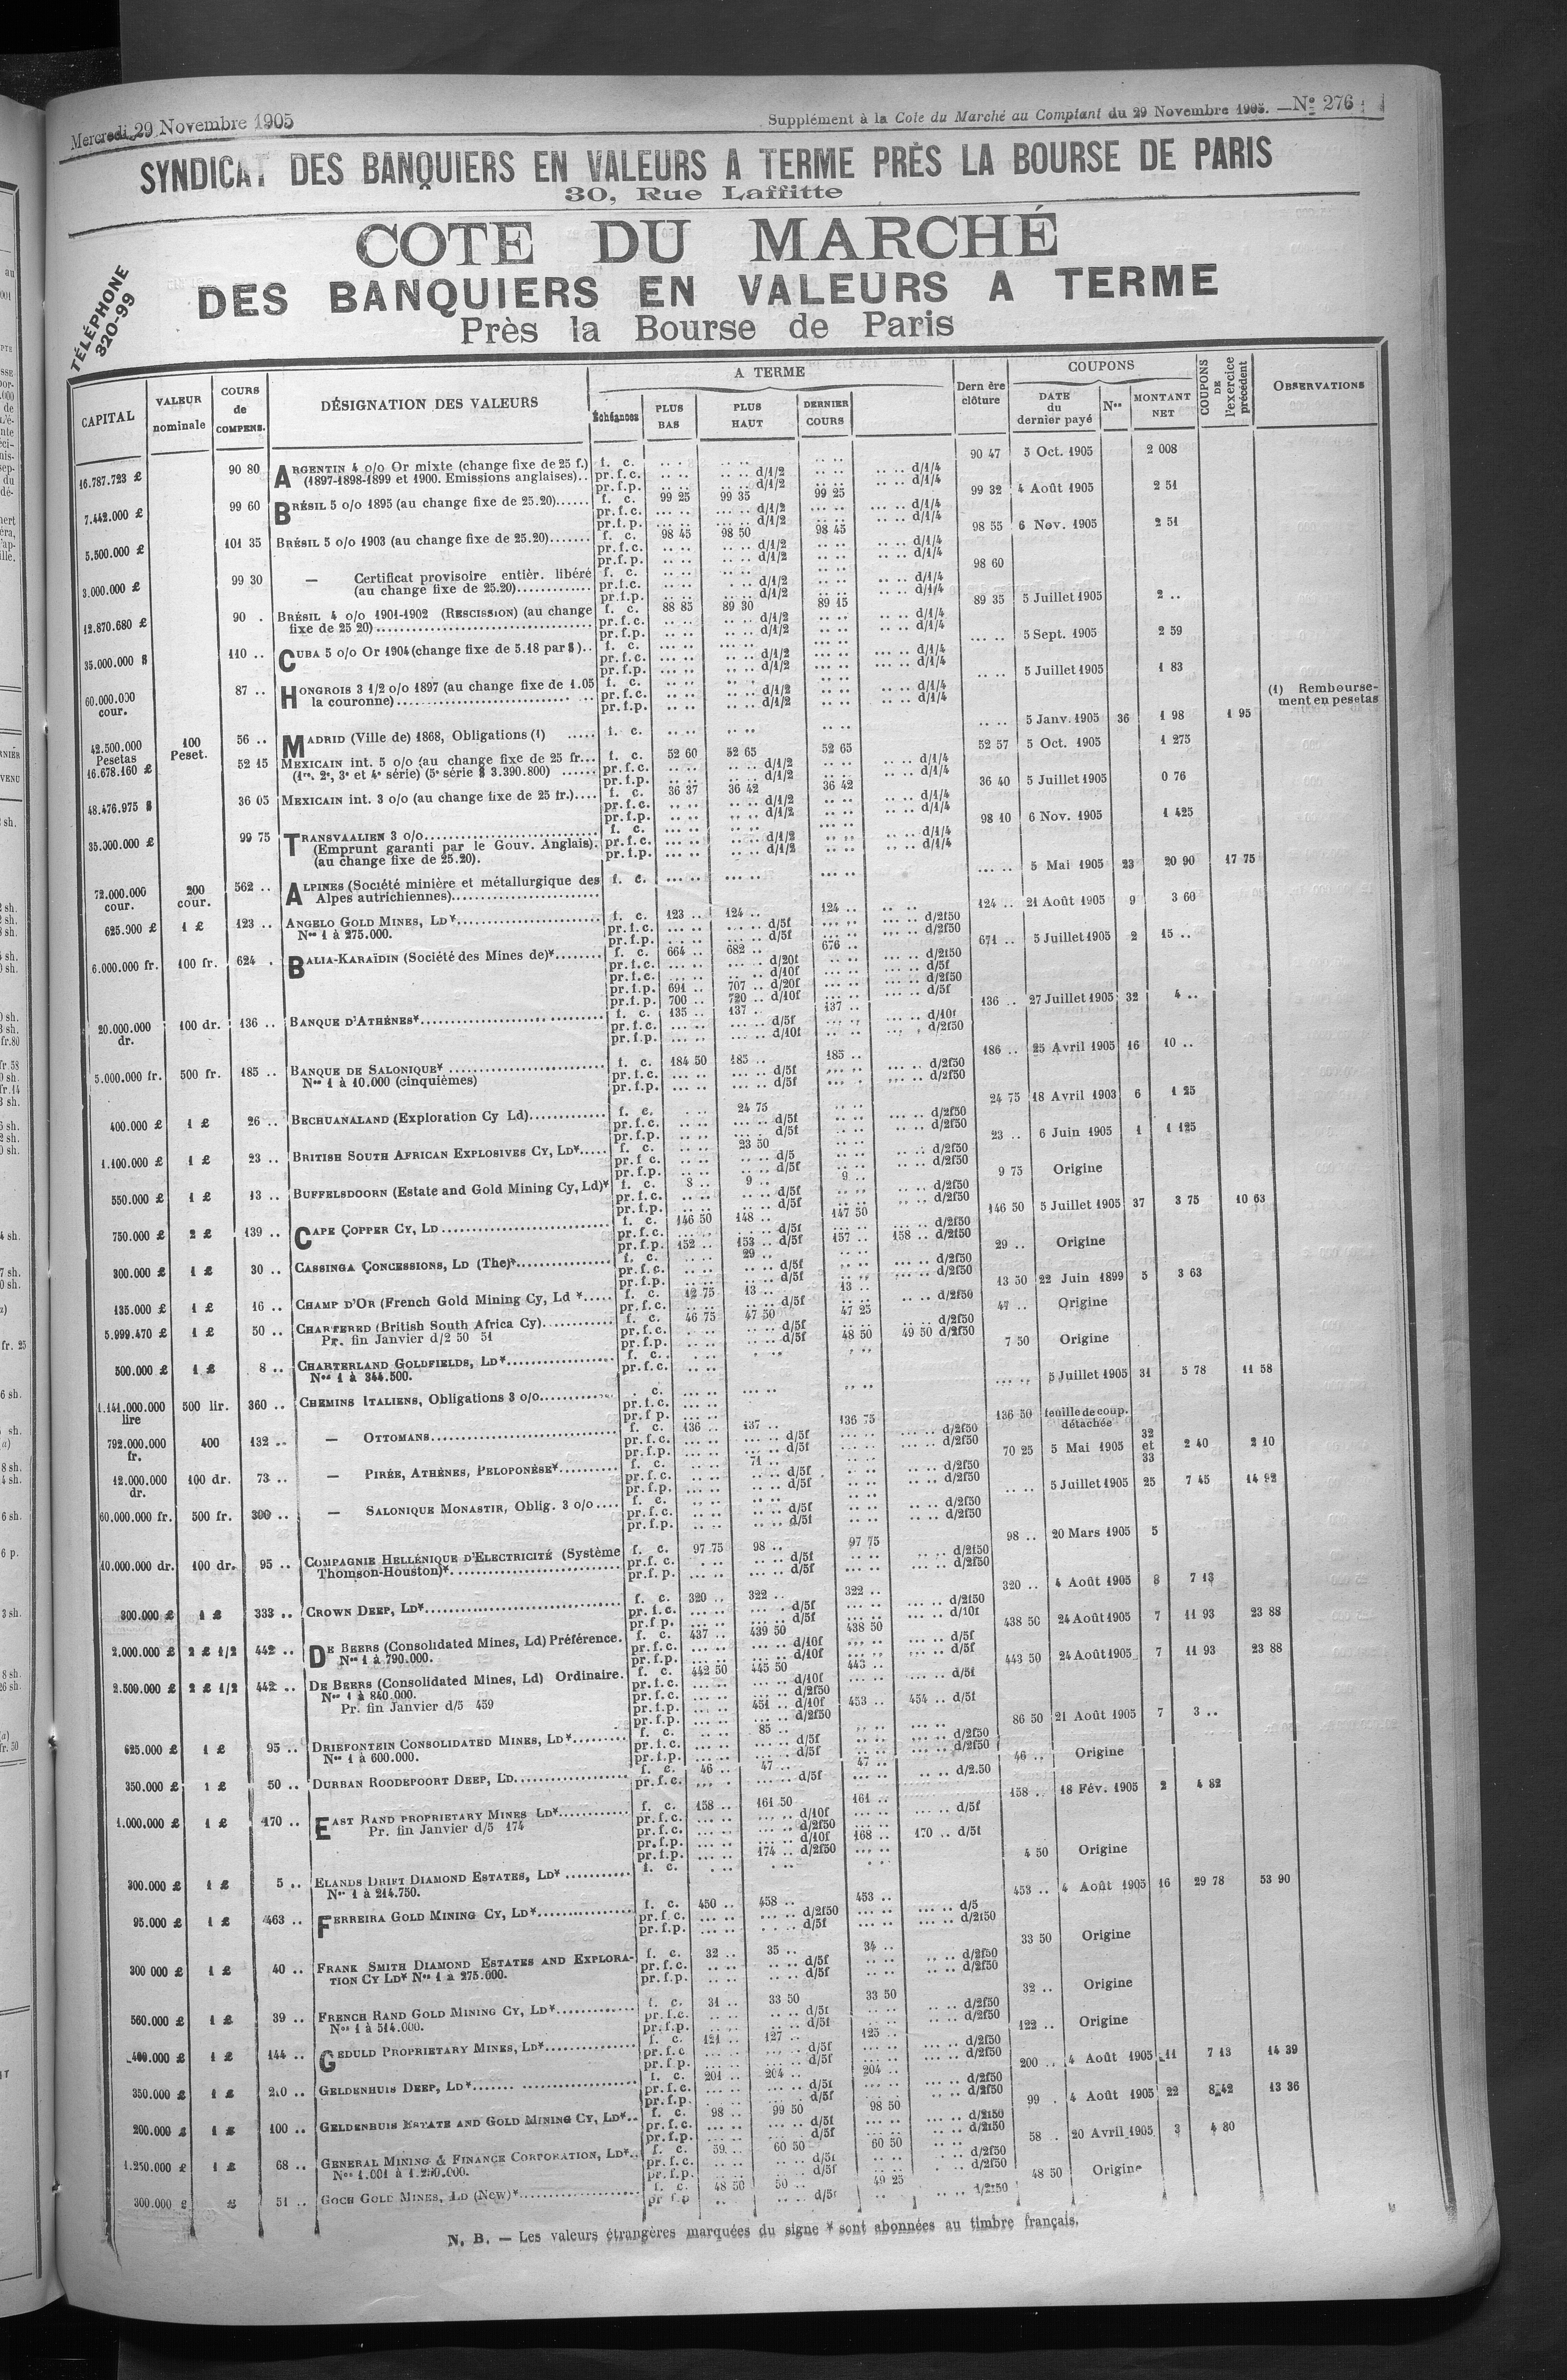 Mercredi 29 Novembre 1905
Supplément à la Cote du Marché au Comptant du 29 Novembre 1905. — No 276
SYNDICAT DES BANQUIERS EN VALEURS A TERME PRÈS LA BOURSE DE PARIS
30, Rue Laffitte
TÉLÉPHONE
320-99
COTE DU MARCHÉ
DES BANQUIERS EN VALEURS A TERME
Près la Bourse de Paris
CAPITAL VALEUR nominale COURS de COMPENS. DÉSIGNATION DES VALEURS A TERME Échéances PLUS BAS PLUS HAUT DERNIER COURS Dern ère clôture COUPONS DATE du dernier payé Nos MONTANT NET COUPONS DE l'exercice précédent OBSERVATIONS
16.787.723 £ 90 80 ARGENTIN 4 o/o Or mixte (change fixe de 25 f.) f. c. 90 47 5 Oct. 1905 2 008
(1897-1898-1899 et 1900. Emissions anglaises).. pr.f.c. d/1/2 d/1/4
pr.f.p. d/1/2 d/1/4
7.442.000 £ 99 60 BRÉSIL 5 o/o 1895 (au change fixe de 25.20)...... f. c. 99 25 99 35 99 25 99 32 4 Août 1905 2 51
pr.f.c. d/1/2 d/1/4
pr.f.p. d/1/2 d/1/4
5.500.000 £ 101 35 BRÉSIL 5 o/o 1903 (au change fixe de 25.20)....... f. c. 98 45 98 50 98 45 98 55 6 Nov. 1905 2 51
pr.f.c. d/1/2 d/1/4
pr.f.p. d/1/2 d/1/4
3.000.000 £ 99 30 — Certificat provisoire entièr. libéré f. c. 98 60
(au change fixe de 25.20)............ pr.f.c. d/1/2 d/1/4
pr.f.p. d/1/2 d/1/4
12.870.680 £ 90 . BRÉSIL 4 o/o 1901-1902 (RESCISSION) (au change f. c. 88 85 89 30 89 15 89 35 5 Juillet 1905 2 ..
fixe de 25 20)................ pr.f.c. d/1/2 d/1/4
pr.f.p. d/1/2 d/1/4
35.000.000 $ 110 .. CUBA 5 o/o Or 1904 (change fixe de 5.18 par $).. f. c. 5 Sept. 1905 2 59
pr.f.c. d/1/2 d/1/4
pr.f.p. d/1/2 d/1/4
60.000.000 cour. 87 .. HONGROIS 3 1/2 o/o 1897 (au change fixe de 1.05 f. c. 5 Juillet 1905 1 83
la couronne)............ pr.f.c. d/1/2 d/1/4
pr.f.p. d/1/2 d/1/4
(1) Remboursement en pesetas
42.500.000 Pesetas 100 Peset. 56 .. MADRID (Ville de) 1868, Obligations (1) ..... f. c. 5 Janv. 1905 36 1 98 1 95
16.678.160 £ 52 15 MEXICAIN int. 5 o/o (au change fixe de 25 fr... f. c. 52 60 52 65 52 65 52 57 5 Oct. 1905 1 275
(1re, 2e, 3e et 4e série) (5e série $ 3.390.800) ...... pr.f.c. d/1/2 d/1/4
pr.f.p. d/1/2 d/1/4
48.476.975 $ 36 05 MEXICAIN int. 3 o/o (au change fixe de 25 fr.).... f. c. 36 37 36 42 36 42 36 40 5 Juillet 1905 0 76
pr.f.c. d/1/2 d/1/4
pr.f.p. d/1/2 d/1/4
35.000.000 £ 99 75 TRANSVAALIEN 3 o/o............ f. c. 98 10 6 Nov. 1905 1 425
(Emprunt garanti par le Gouv. Anglais). pr.f.c. d/1/2 d/1/4
(au change fixe de 25.20). pr.f.p. d/1/2 d/1/4
72.000.000 cour. 200 cour. 562 .. ALPINES (Société minière et métallurgique des f. c. 5 Mai 1905 23 20 90 17 75
Alpes autrichiennes)............
625.000 £ 1 £ 123 .. ANGELO GOLD MINES, LD*............ f. c. 123 .. 124 .. 124 .. 124 .. 21 Août 1905 9 3 60
Nos 1 à 275.000. pr.f.c. d/5f d/2f50
pr.f.p. d/5f d/2f50
6.000.000 fr. 100 fr. 624 . BALIA-KARAÏDIN (Société des Mines de)*........ f. c. 664 .. 682 .. 676 .. 671 .. 5 Juillet 1905 2 15 ..
pr.f.c. d/20f d/2f50
pr.f.c. d/10f d/5f
pr.f.p. 691 .. 707 .. d/20f d/2f50
pr.f.p. 700 .. 720 .. d/10f d/5f
20.000.000 dr. 100 dr. 136 .. BANQUE D'ATHÈNES*............ f. c. 135 .. 137 .. 137 .. 136 .. 27 Juillet 1905 32 4 ..
pr.f.c. d/5f d/10f
pr.f.p. d/10f d/2f50
5.000.000 fr. 500 fr. 185 .. BANQUE DE SALONIQUE*............ f. c. 184 50 185 .. 185 .. 186 .. 25 Avril 1905 16 10 ..
Nos 1 à 10.000 (cinquièmes) pr.f.c. d/5f d/2f50
pr.f.p. d/5f d/2f50
400.000 £ 1 £ 26 .. BECHUANALAND (Exploration Cy Ld)............ f. c. 24 75 24 75 18 Avril 1903 6 1 25
pr.f.c. d/5f d/2f50
pr.f.p. d/5f d/2f50
1.100.000 £ 1 £ 23 .. BRITISH SOUTH AFRICAN EXPLOSIVES CY, LD*..... f. c. 23 50 23 .. 6 Juin 1905 1 1 125
pr.f.c. d/5 d/2f50
pr.f.p. d/5f d/2f50
550.000 £ 1 £ 13 .. BUFFELSDOORN (Estate and Gold Mining Cy, Ld)* f. c. 8 .. 9 .. 9 .. 9 75 Origine
pr.f.c. d/5f d/2f50
pr.f.p. d/5f d/2f50
750.000 £ 2 £ 139 .. CAPE COPPER CY, LD............ f. c. 146 50 148 .. 147 50 146 50 5 Juillet 1905 37 3 75 10 63
pr.f.c. d/5f d/2f50
pr.f.p. 152 .. 153 .. d/5f 157 .. 158 .. d/2f50
300.000 £ 1 £ 30 .. CASSINGA CONCESSIONS, LD (The)*............ f. c. 29 .. 29 .. Origine
pr.f.c. d/5f d/2f50
pr.f.p. d/5f d/2f50
135.000 £ 1 £ 16 .. CHAMP D'OR (French Gold Mining Cy, Ld *..... f. c. 12 75 13 .. 13 .. 13 50 22 Juin 1899 5 3 63
pr.f.c. d/5f d/2f50
5.999.470 £ 1 £ 50 .. CHARTERED (British South Africa Cy)............ f. c. 46 75 47 50 47 25 47 .. Origine
Pr. fin Janvier d/2 50 51 pr.f.c. d/5f d/2f50
pr.f.p. d/5f 48 50 49 50 d/2f50
500.000 £ 1 £ 8 .. CHARTERLAND GOLDFIELDS, LD*............ f. c. 7 50 Origine
Nos 1 à 344.500. pr.f.c.
1.141.000.000 lire 500 lir. 360 .. CHEMINS ITALIENS, Obligations 3 o/o............ c. 5 Juillet 1905 31 5 78 11 58
pr.f.c.
pr.f.p.
792.000.000 fr. 400 132 .. — OTTOMANS............ f. c. 136 .. 137 .. 136 75 136 50 feuille de coup. détachée
pr.f.c. d/5f d/2f50
pr.f.p. d/5f d/2f50
12.000.000 dr. 100 dr. 73 .. — PIRÉE, ATHÈNES, PELOPONÈSE*.......... f. c. 71 .. 70 25 5 Mai 1905 32 et 33 2 40 2 10
pr.f.c. d/5f d/2f50
pr.f.p. d/5f d/2f50
60.000.000 fr. 500 fr. 300 .. — SALONIQUE MONASTIR, Oblig. 3 o/o.... f. c. 5 Juillet 1905 25 7 45 14 92
pr.f.c. d/5f d/2f50
pr.f.p. d/5f d/2f50
10.000.000 dr. 100 dr. 95 .. COMPAGNIE HELLÉNIQUE D'ELECTRICITÉ (Système f. c. 97 75 98 .. 97 75 98 .. 20 Mars 1905 5
Thomson-Houston)*............ pr.f.c. d/5f d/2f50
pr.f.p. d/5f d/2f50
300.000 £ 1 £ 333 .. CROWN DEEP, LD*............ f. c. 320 .. 322 .. 322 .. 320 .. 4 Août 1905 8 7 13
pr.f.c. d/5f d/2f50
pr.f.p. d/5f d/10f
2.000.000 £ 2 £ 1/2 442 .. DE BEERS (Consolidated Mines, Ld) Préférence. f. c. 437 .. 439 50 438 50 438 50 24 Août 1905 7 11 93 23 88
Nos 1 à 790.000. pr.f.c. d/10f d/5f
pr.f.p. d/10f d/5f
2.500.000 £ 2 £ 1/2 442 .. DE BEERS (Consolidated Mines, Ld) Ordinaire. f. c. 442 50 445 50 443 .. 443 50 24 Août 1905 7 11 93 23 88
Nos 1 à 840.000. pr.f.c. d/10f d/5f
Pr. fin Janvier d/5 459 pr.f.c. d/2f50
pr.f.p. 451 .. d/10f 453 .. 454 .. d/5f
pr.f.p. d/2f50
625.000 £ 1 £ 95 .. DRIEFONTEIN CONSOLIDATED MINES, LD*......... f. c. 85 .. 86 50 21 Août 1905 7 3 ..
Nos 1 à 600.000. pr.f.c. d/5f d/2f50
pr.f.p. d/5f d/2f50
350.000 £ 1 £ 50 .. DURBAN ROODEPOORT DEEP, LD............ f. c. 46 .. 47 .. 47 .. 46 .. Origine
pr.f.c. d/5f d/2.50
1.000.000 £ 1 £ 170 .. EAST RAND PROPRIETARY MINES LD*............ f. c. 158 .. 161 50 161 .. 158 .. 18 Fév. 1905 2 4 82
Pr. fin Janvier d/5 174 pr.f.c. d/10f d/5f
pr.f.c. d/2f50
pr.f.p. d/10f 168 .. 170 .. d/5f
pr.f.p. 174 .. d/2f50
300.000 £ 1 £ 5 .. ELANDS DRIFT DIAMOND ESTATES, LD*........... f. c. 4 50 Origine
Nos 1 à 214.750.
95.000 £ 1 £ 463 .. FERREIRA GOLD MINING CY, LD*............ f. c. 450 .. 458 .. 453 .. 453 .. 4 Août 1905 16 29 78 53 90
pr.f.c. d/2f50 d/5
pr.f.p. d/5f d/2f50
300 000 £ 1 £ 40 .. FRANK SMITH DIAMOND ESTATES AND EXPLORA- f. c. 32 .. 35 .. 34 .. 33 50 Origine
TION CY LD* Nos 1 à 275.000. pr.f.c. d/5f d/2f50
pr.f.p. d/5f d/2f50
560.000 £ 1 £ 39 .. FRENCH RAND GOLD MINING CY, LD*............ f. c. 31 .. 33 50 33 50 32 .. Origine
Nos 1 à 514.000. pr.f.c. d/5f d/2f50
pr.f.p. d/5f d/2f50
400.000 £ 1 £ 144 .. GEDULD PROPRIETARY MINES, LD*............ f. c. 121 .. 127 .. 125 .. 122 .. Origine
pr.f.c. d/5f d/2f50
pr.f.p. d/5f d/2f50
350.000 £ 1 £ 210 .. GELDENHUIS DEEP, LD*............ f. c. 201 .. 204 .. 204 .. 200 .. 4 Août 1905 11 7 13 14 39
pr.f.c. d/5f d/2f50
pr.f.p. d/5f d/2f50
200.000 £ 1 £ 100 .. GELDENHUIS ESTATE AND GOLD MINING CY, LD*.. f. c. 98 .. 99 50 98 50 99 . 4 Août 1905 22 8 42 13 36
pr.f.c. d/5f d/2f50
pr.f.p. d/5f d/2f50
1.250.000 £ 1 £ 68 .. GENERAL MINING & FINANCE CORPORATION, LD*.. f. c. 59 .. 60 50 60 50 58 . 20 Avril 1905 3 4 80
Nos 1.001 à 1.250.000. pr.f.c. d/5f d/2f50
pr.f.p. d/5f d/2f50
300.000 £ £ 51 .. GOCH GOLD MINES, LD (New)*............ f. c. 48 50 50 .. 49 25 48 50 Origine
pr f.p d/5f d/2f50
N. B. — Les valeurs étrangères marquées du signe * sont abonnées au timbre français.